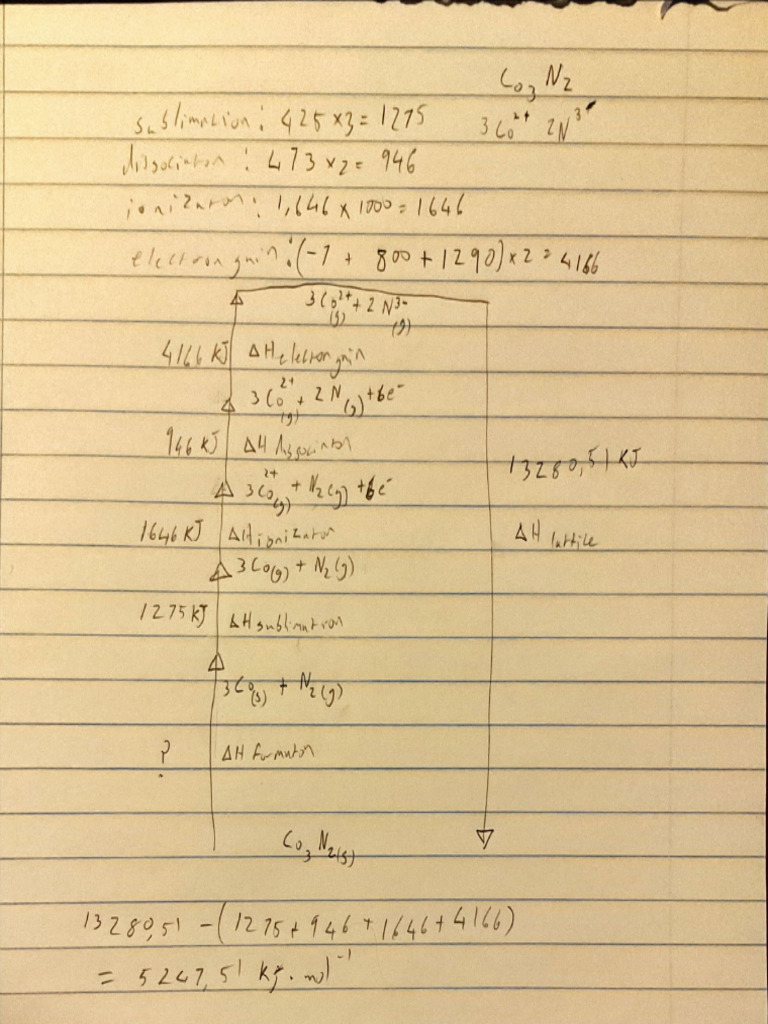 Co₃N₂
sublimation: 425 x3 = 1275 3Co²⁺ 2N³⁻
dissociation: 473 x2= 946
ionization: 1,646 x 1000 = 1646
electron gain: (-7 + 800 + 1290) x 2 = 4166
3Co²⁺(g) + 2N³⁻(g)
4166 KJ ΔH electron gain
3Co²⁺(g) + 2N(g) + 6e⁻
946 KJ ΔH dissociation
3Co²⁺(g) + N₂(g) + 6e⁻
13280,51 KJ
1646 KJ ΔH ionization ΔH lattice
3Co(g) + N₂(g)
1275 KJ ΔH sublimation
3Co(s) + N₂(g)
? ΔH formation
Co₃N₂(s)
13280,51 - (1275 + 946 + 1646 + 4166)
= 5247,51 kJ·mol⁻¹